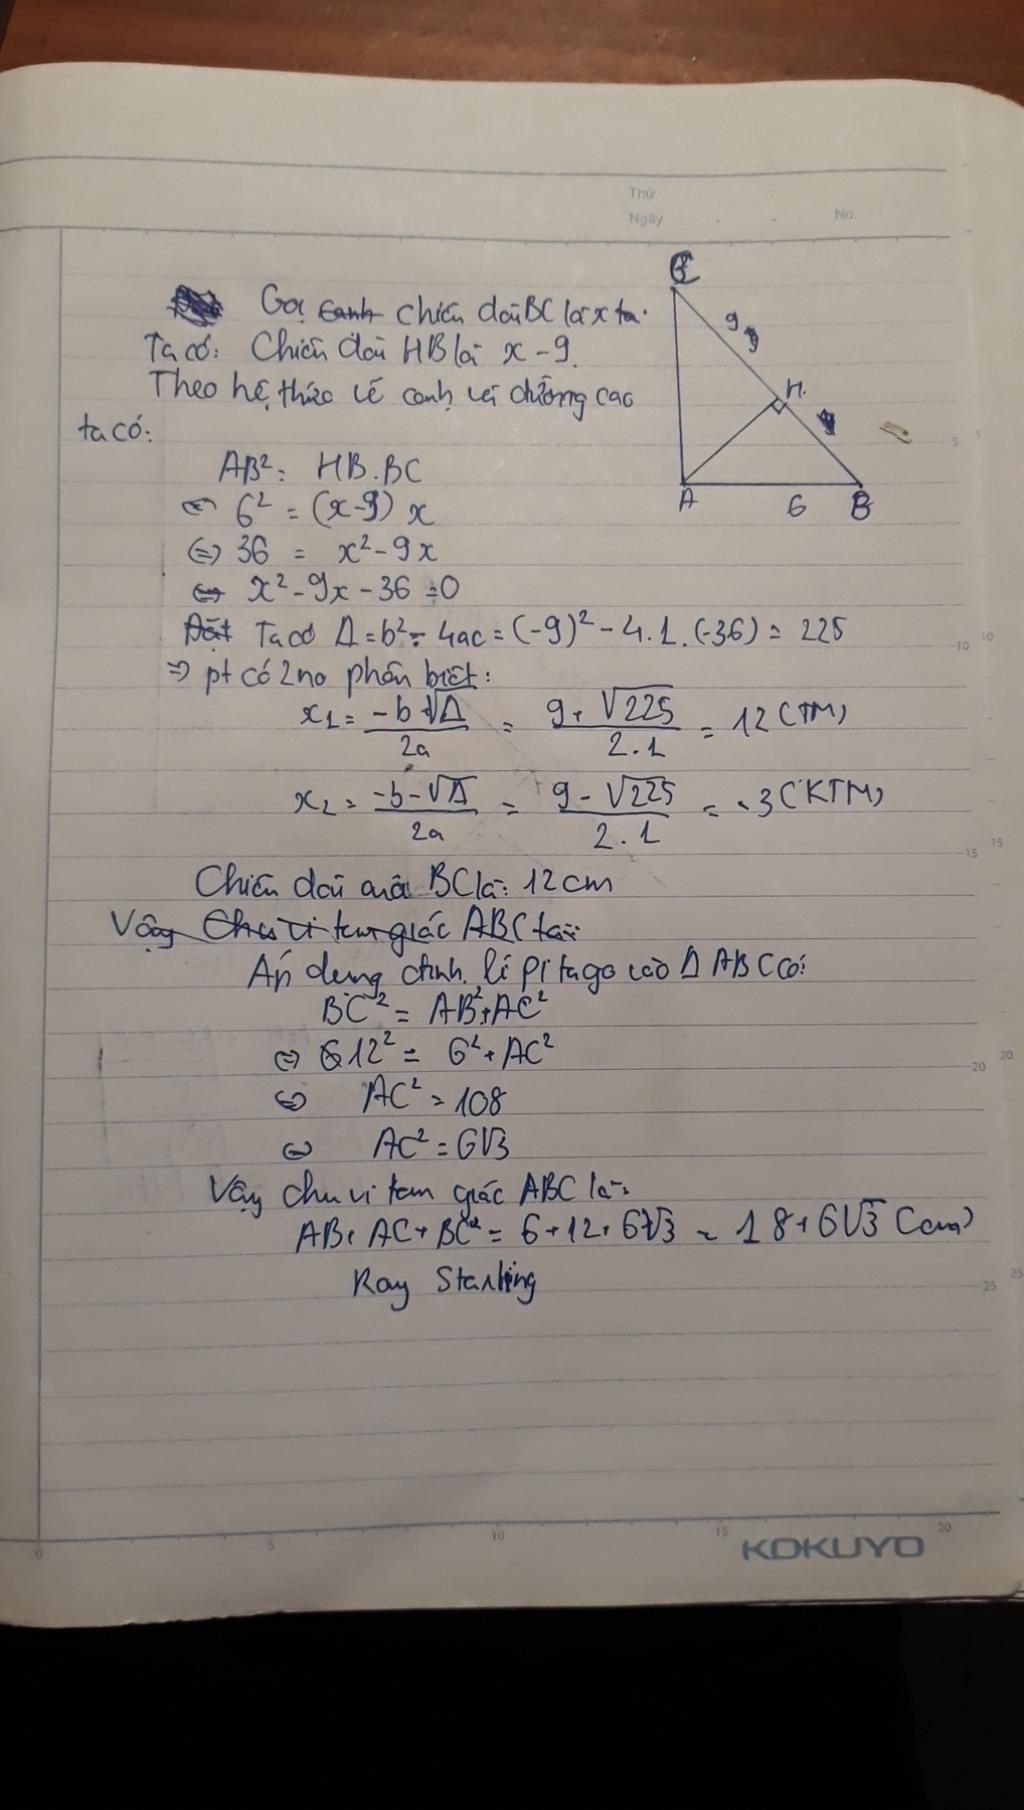 Thứ
Ngày . . No.
Gọi cạnh chiều dài BC là x ta.
Ta có: Chiều dài HB là x - 9.
Theo hệ thức về cạnh và đường cao
ta có:
C
9
H.
A 6 B
AB² = HB.BC
⇔ 6² = (x-9) x
⇔ 36 = x² - 9x
⇔ x² - 9x - 36 = 0
Đặt Ta có Δ = b² - 4ac = (-9)² - 4.1.(-36) = 225
⇒ pt có 2 no phân biệt:
x₁ = (-b+√Δ)/2a = (9+√225)/2.1 = 12 (TM)
x₂ = (-b-√Δ)/2a = (9-√225)/2.1 = -3 (KTM)
Chiều dài của BC là: 12cm
Vậy Chu vi tam giác ABC là:
Áp dụng định lí pi tago vào Δ ABC có:
BC² = AB² + AC²
⇔ 12² = 6² + AC²
⇔ AC² = 108
⇔ AC² = 6√3
Vậy chu vi tam giác ABC là:
AB + AC + BC = 6 + 12 + 6√3 = 18 + 6√3 (cm)
Ray Starling
5
10
15
20
25
0 5 10 15 20
KOKUYO